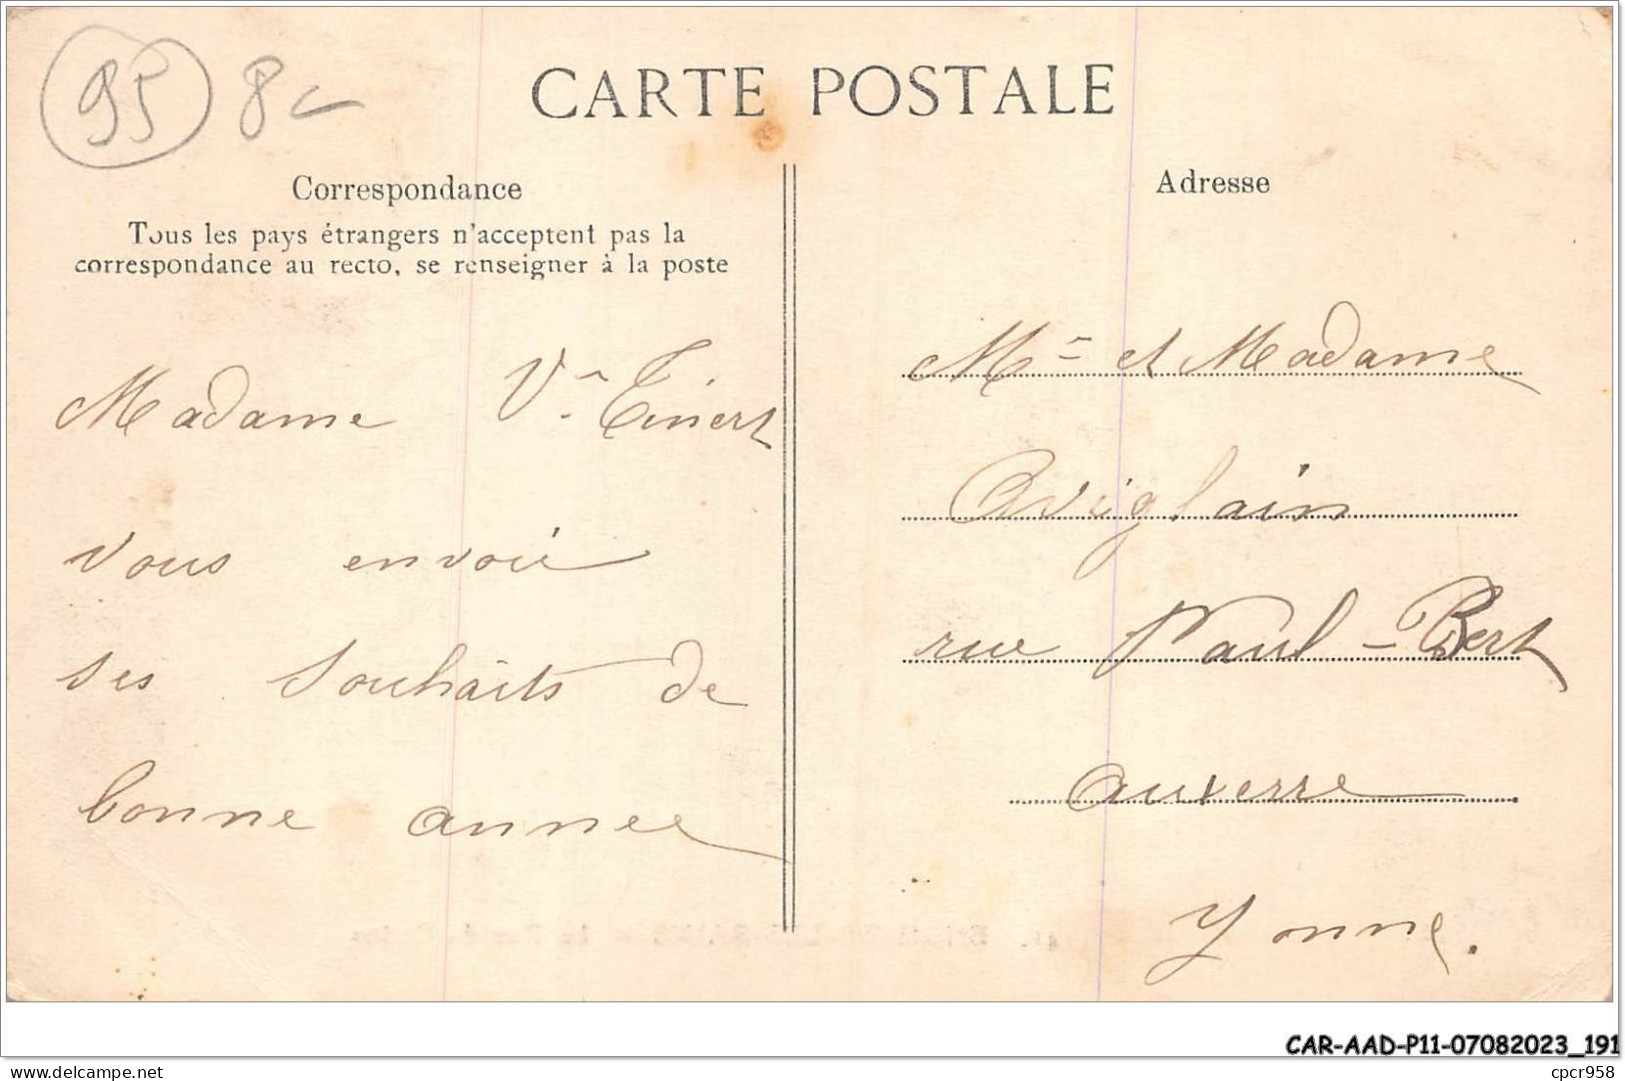 95 8
CARTE POSTALE
Correspondance
Tous les pays étrangers n'acceptent pas la
correspondance au recto, se renseigner à la poste
Madame Vve Tinert
vous envoie
ses souhaits de
bonne année
Adresse
Mr et Madame
Aviglain
rue Paul-Bert
Auxerre
Yonne.
CAR-AAD-P11-07082023_191
cpcr958